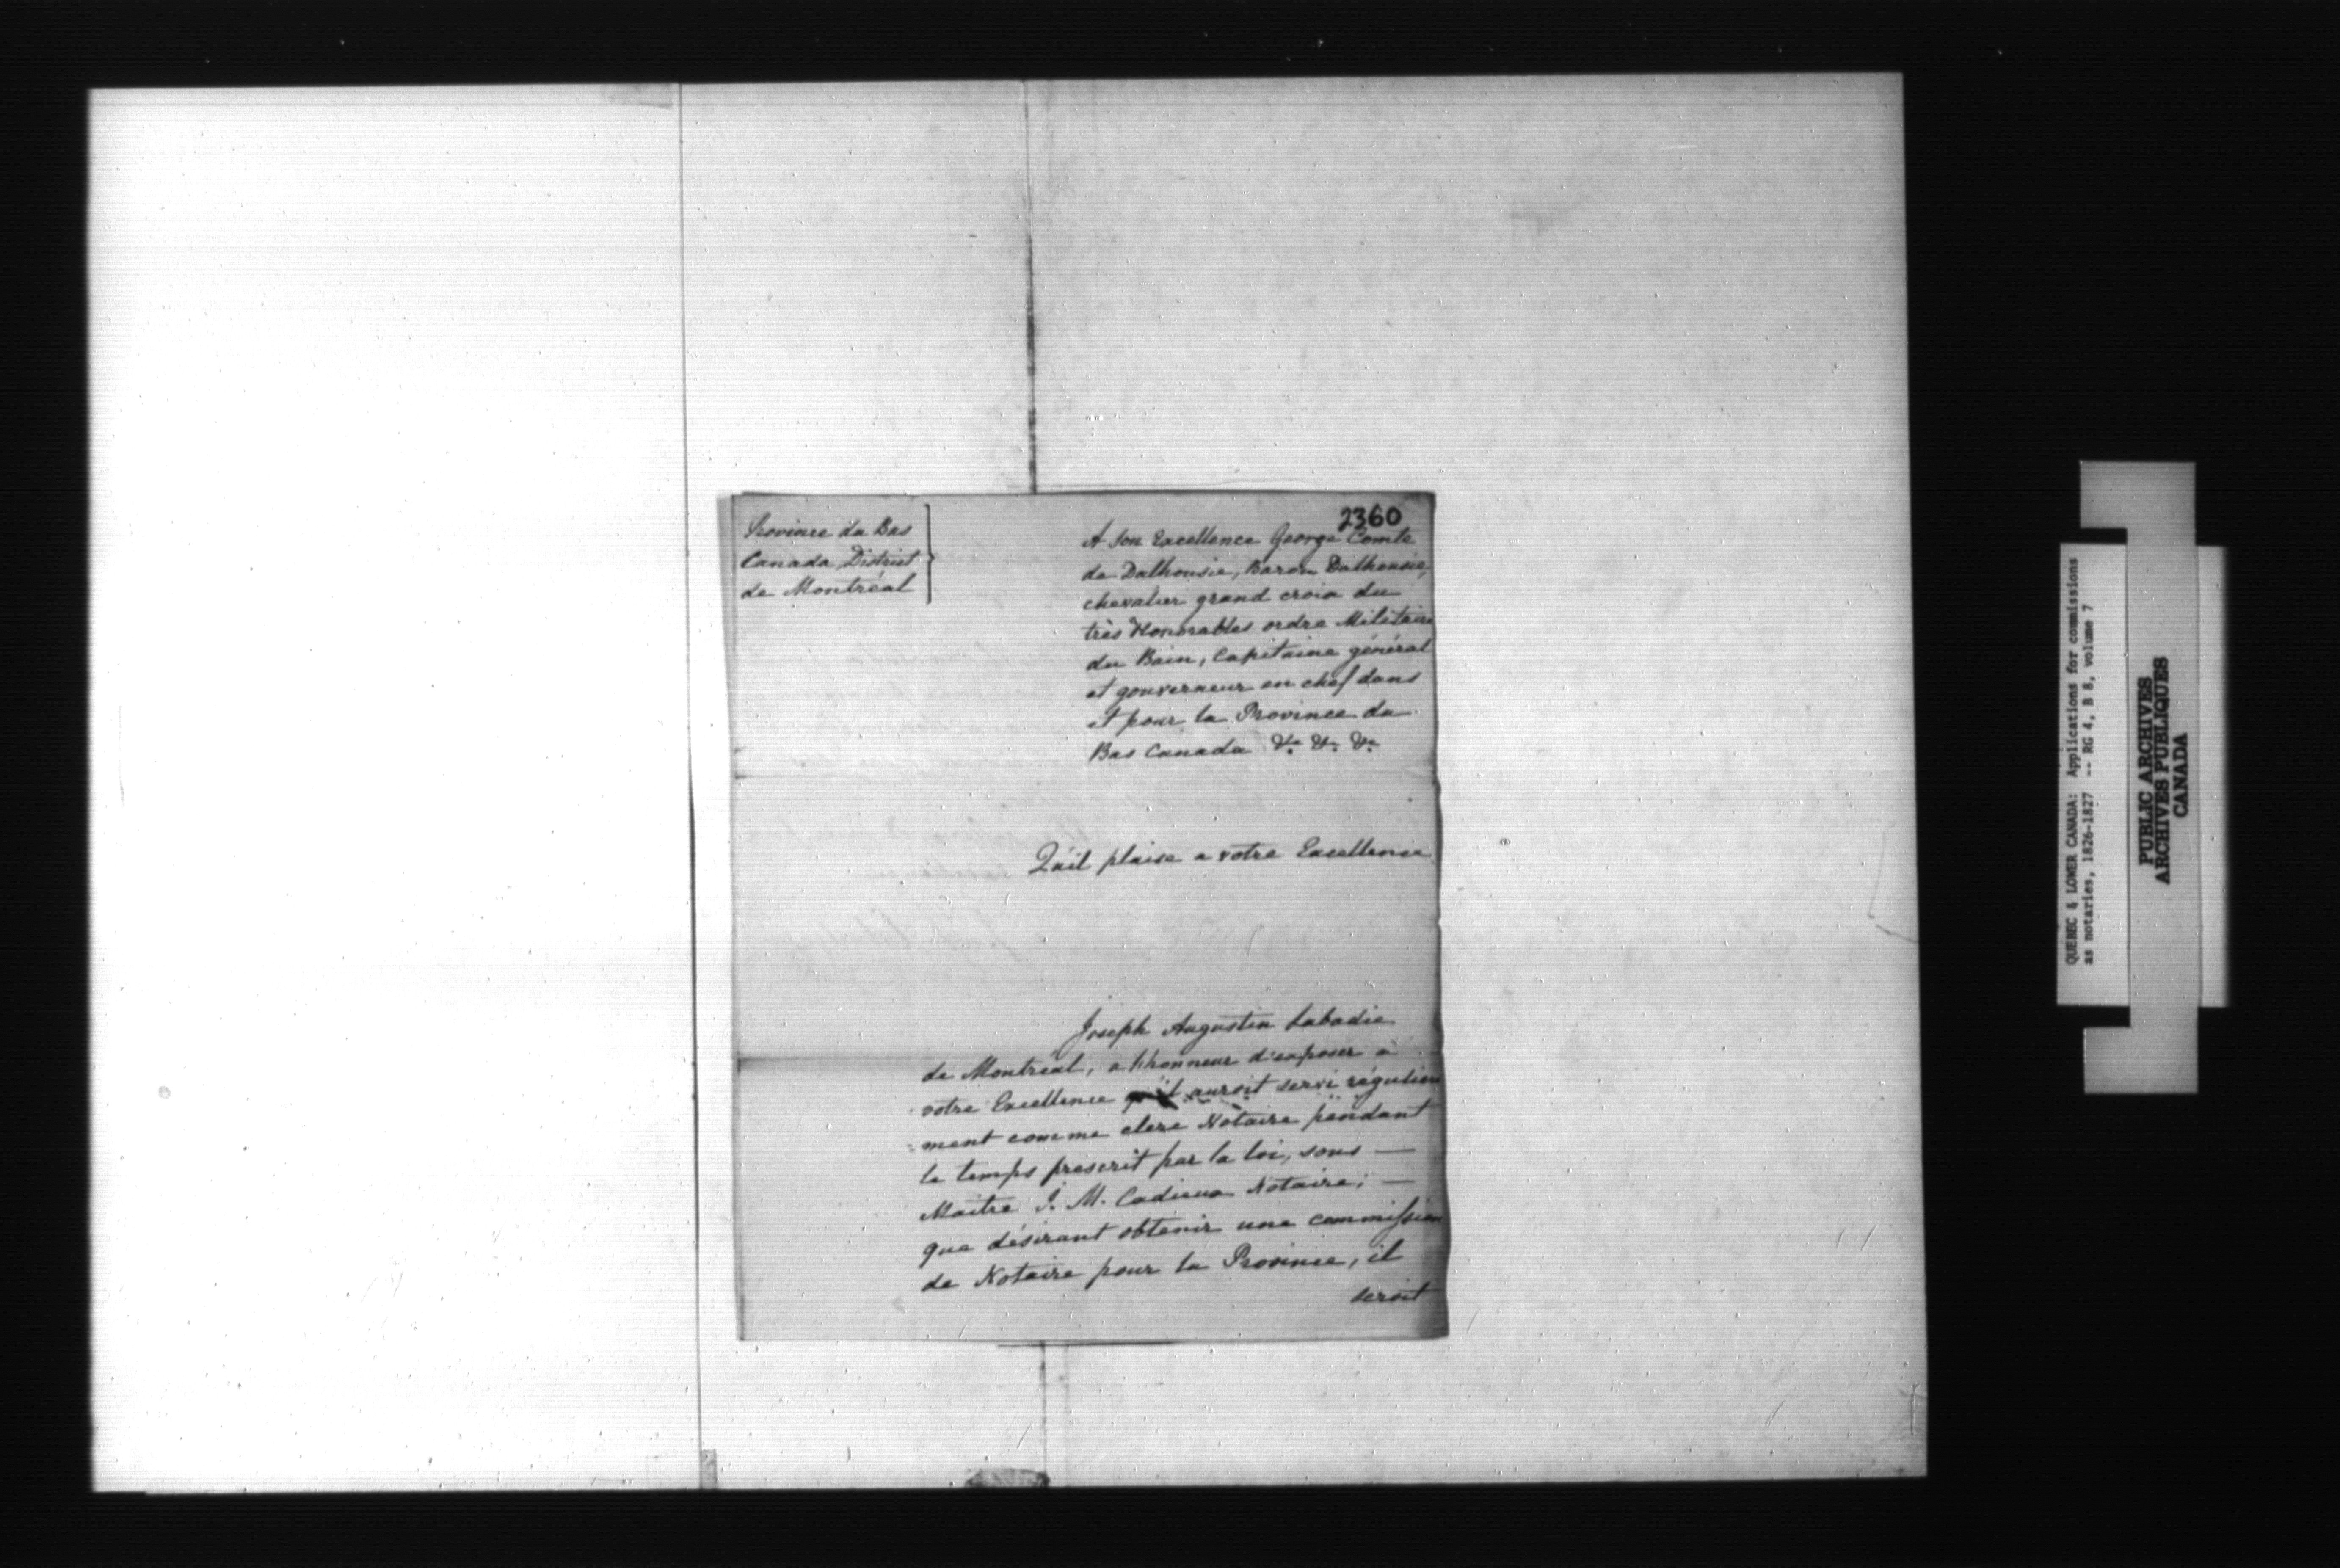 2360
Province du Bas
Canada, District
de Montréal
A Son Excellence George Comte
de Dalhousie, Baron Dalhousie,
chevalier grand croix du
très Honorables ordre Militaire
du Bain, Capitaine général
et gouverneur en chef dans
et pour la Province du
Bas Canada &c. &c. &c.
Qu'il plaise a votre Excellence
Joseph Augustin Labadie
de Montréal, a l'honneur d'exposer à
votre Excellence qu'il auroit servi régulière
=ment comme clerc Notaire pendant
le temps prescrit par la loi, sous —
Maitre J. M. Cadieux Notaire; —
que désirant obtenir une commission
de Notaire pour la Province, il
seroit
QUEBEC & LOWER CANADA: Applications for commissions
as notaries, 1826-1827 -- RG 4, B 8, volume 7
PUBLIC ARCHIVES
ARCHIVES PUBLIQUES
CANADA